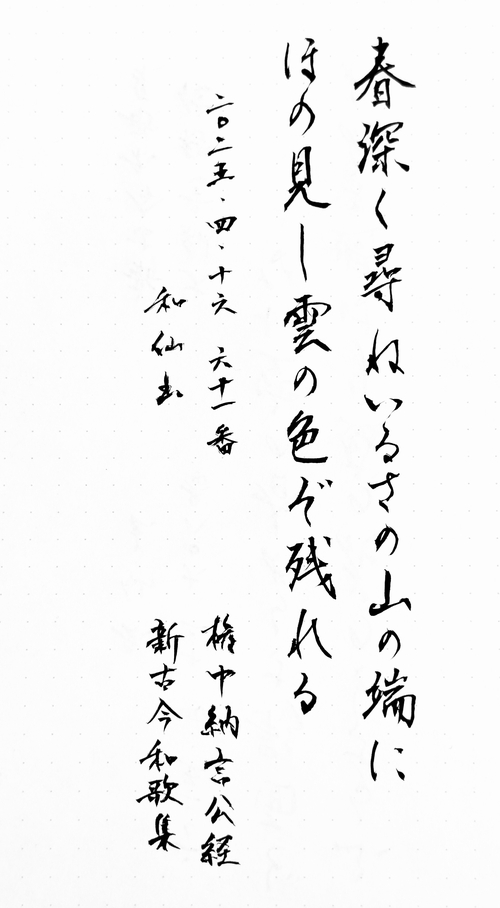 春深く尋ねいるさの山の端に
ほの見し雲の色ぞ残れる
二〇二五・四・十六 六十一番
権中納言公経
和仙書
新古今和歌集